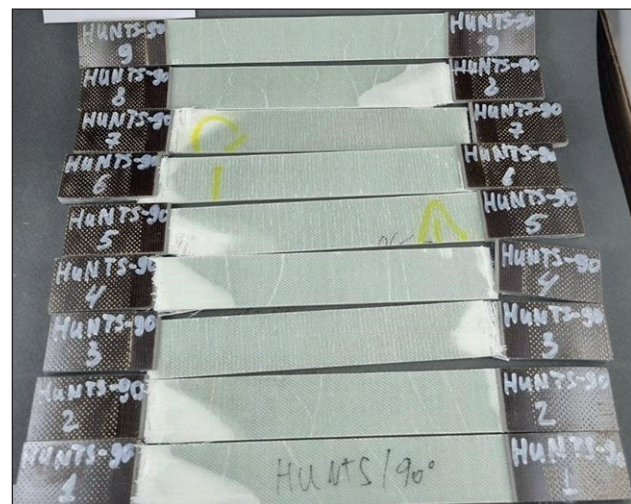 HUNTS-90
9
9
HUNTS-90
8
HUNTS-90
8
HUNTS-90
7
HUNTS-90
7
HUNTS-90
6
HUNTS-90
6
HUNTS-90
5
HUNTS-90
5
HUNTS-90
4
HUNTS-90
4
HUNTS-90
3
HUNTS-90
3
HUNTS-90
2
HUNTS-90
2
HUNTS-90
1
HUNTS-90
1
HUNTS/90°